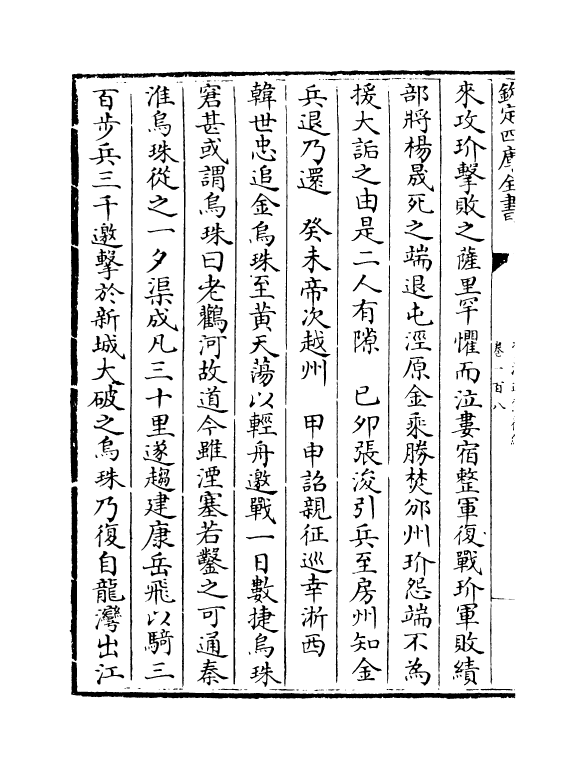 欽定四庫全書
卷一百八
來攻玠擊敗之薩里罕懼而泣婁宿整軍復戰玠軍敗績
部將楊晟死之端退屯涇原金乘勝焚邠州玠怨端不為
援大詬之由是二人有隙　己夘張浚引兵至房州知金
兵退乃還　癸未帝次越州　甲申詔親征巡幸浙西
韓世忠追金烏珠至黃天蕩以輕舟邀戰一日數捷烏珠
窘甚或謂烏珠曰老鸛河故道今雖湮塞若鑿之可通秦
淮烏珠從之一夕渠成凡三十里遂趨建康岳飛以騎三
百步兵三千邀擊於新城大破之烏珠乃復自龍灣出江